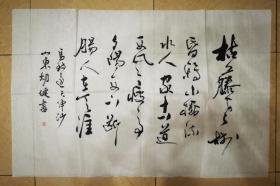 枯藤老树
昏鸦小桥流
水人家古道
西风瘦马
夕阳西下断
肠人在天涯
马致远天净沙
山东
书